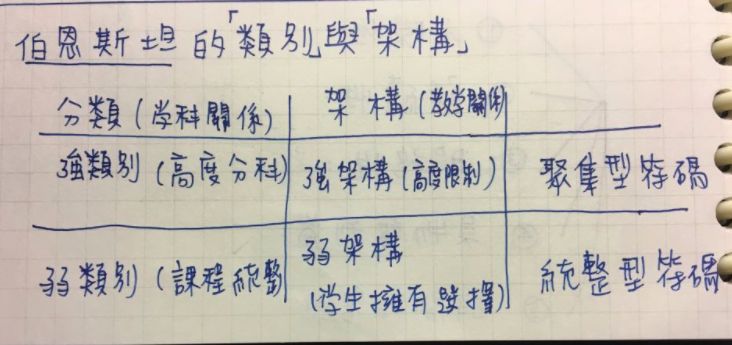 伯恩斯坦的「類別」與「架構」
分類(学科關係) 架構(教学關係)
強類別(高度分科) 強架構(高度限制) 聚集型符碼
弱類別(課程統整) 弱架構 統整型符碼
(学生擁有選擇)